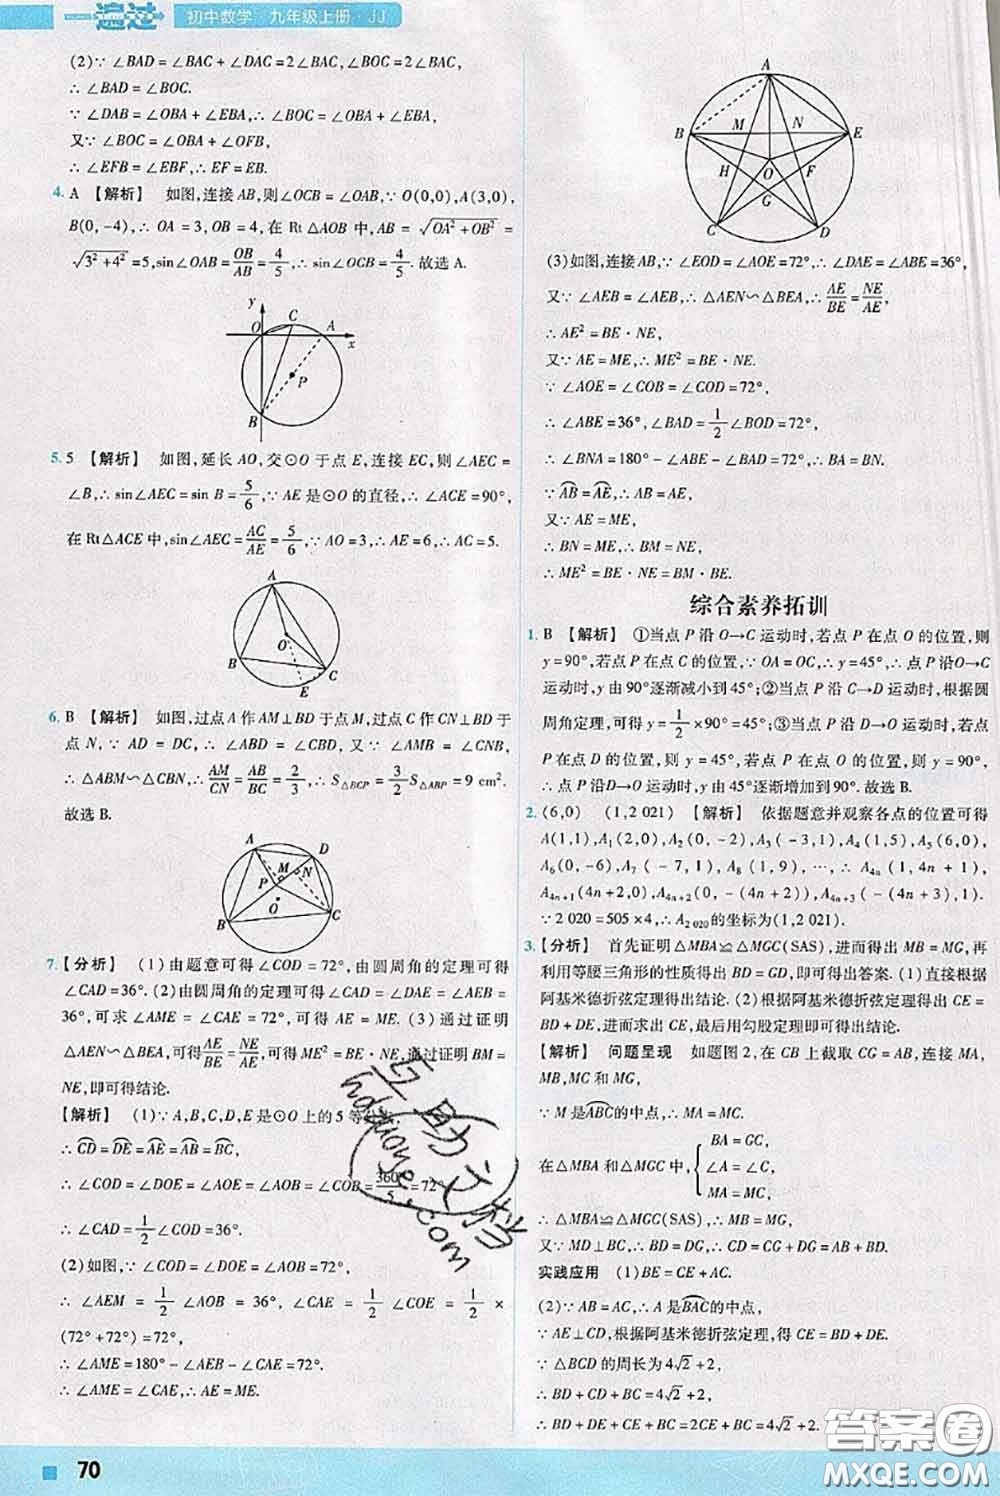 一遍过 初中数学·九年级上册·JJ
(2)∵∠BAD=∠BAC+∠DAC=2∠BAC,∠BOC=2∠BAC,
∴∠BAD=∠BOC.
∵∠DAB=∠OBA+∠EBA,∴∠BOC=∠OBA+∠EBA,
又∵∠BOC=∠OBA+∠OFB,
∴∠EFB=∠EBF,∴EF=EB.
4. A 【解析】 如图,连接AB,则∠OCB=∠OAB,∵O(0,0),A(3,0),
B(0,-4),∴OA=3,OB=4,在Rt△AOB中,AB=√(OA²+OB²)=
√(3²+4²)=5,sin∠OAB=OB/AB=4/5,∴sin∠OCB=4/5.故选A.
y C O A x P B
5. 5 【解析】 如图,延长AO,交⊙O于点E,连接EC,则∠AEC=
∠B,∴sin∠AEC=sin B=5/6,∵AE是⊙O的直径,∴∠ACE=90°,
在Rt△ACE中,sin∠AEC=AC/AE=5/6,∵AO=3,∴AE=6,∴AC=5.
A O B C E
6. B 【解析】 如图,过点A作AM⊥BD于点M,过点C作CN⊥BD于
点N,∵AD=DC,∴∠ABD=∠CBD,又∵∠AMB=∠CNB,
∴△ABM∽△CBN,∴AM/CN=AB/BC=2/3,∴S△BCP=3/2 S△ABC P=9 cm².
故选B.
A D M N P O B C
7. 【分析】 (1)由题意可得∠COD=72°,由圆周角的定理可得
∠CAD=36°.(2)由圆周角的定理可得∠CAD=∠DAE=∠AEB=
36°,可求∠AME=∠CAE=72°,可得AE=ME.(3)通过证明
△AEN∽△BEA,可得AE/BE=NE/AE,可得ME²=BE·NE,通过证明BM=
NE,即可得结论.
【解析】 (1)∵A,B,C,D,E是⊙O上的5等分点,
∴⌒CD=⌒DE=⌒AE=⌒AB=⌒BC,
∴∠COD=∠DOE=∠AOE=∠AOB=∠COB=360°/5=72°,
∴∠CAD=1/2∠COD=36°.
(2)如图,∵∠COD=∠DOE=∠AOB=72°,
∴∠AEM=1/2∠AOB=36°,∠CAE=1/2∠COE=1/2×
(72°+72°)=72°,
∴∠AME=180°-∠AEB-∠CAE=72°.
∴∠AME=∠CAE,∴AE=ME.
A B M N E O H F G C D
(3)如图,连接AB,∵∠EOD=∠AOE=72°,∴∠DAE=∠ABE=36°,
又∵∠AEB=∠AEB,∴△AEN∽△BEA,∴AE/BE=NE/AE,
∴AE²=BE·NE,
又∵AE=ME,∴ME²=BE·NE.
∵∠AOE=∠COB=∠COD=72°,
∴∠ABE=36°,∠BAD=1/2∠BOD=72°,
∴∠BNA=180°-∠ABE-∠BAD=72°,∴BA=BN.
∵⌒AB=⌒AE,∴AB=AE,
又∵AE=ME,
∴BN=ME,∴BM=NE,
∴ME²=BE·NE=BM·BE.
综合素养拓训
1. B 【解析】 ①当点P沿O→C运动时,若点P在点O的位置,则
y=90°,若点P在点C的位置,∵OA=OC,∴y=45°,∴点P沿O→C
运动时,y由90°逐渐减小到45°;②当点P沿C→D运动时,根据圆
周角定理,可得y=1/2×90°=45°;③当点P沿D→O运动时,若点
P在点D的位置,则y=45°,若点P在点O的位置,则y=90°,∴点
P沿D→O运动时,y由45°逐渐增加到90°.故选B.
2. (6,0) (1,2 021) 【解析】 依据题意并观察各点的位置可得
A(1,1),A₁(2,0),A₂(0,-2),A₃(-3,1),A₄(1,5),A₅(6,0),
A₆(0,-6),A₇(-7,1),A₈(1,9),…,∴A₄ₙ(1,4n+1),
A₄ₙ₊₁(4n+2,0),A₄ₙ₊₂(0,-(4n+2)),A₄ₙ₊₃(-(4n+3),1).
∵2 020=505×4,∴A₂ ₀₂₀的坐标为(1,2 021).
3. 【分析】 首先证明△MBA≌△MGC(SAS),进而得出MB=MG,再
利用等腰三角形的性质得出BD=GD,即可得出答案.(1)直接根据
阿基米德折弦定理得出结论.(2)根据阿基米德折弦定理得出CE=
BD+DE,进而求出CE,最后用勾股定理即可得出结论.
【解析】 问题呈现 如题图2,在CB上截取CG=AB,连接MA,
MB,MC和MG,
∵M是⌒ABC的中点,∴MA=MC.
在△MBA和△MGC中,{BA=GC, ∠A=∠C, MA=MC,
∴△MBA≌△MGC(SAS),∴MB=MG,
又∵MD⊥BC,∴BD=GD,∴CD=CG+GD=AB+BD.
实践应用 (1)BE=CE+AC.
(2)∵AB=AC,∴A是⌒BAC的中点,
∵AE⊥CD,根据阿基米德折弦定理,得CE=BD+DE.
∵△BCD的周长为4√2+2,
∴BD+CD+BC=4√2+2,
∴BD+DE+CE+BC=2CE+BC=4√2+2.
70
互助文档
hdzuoye.com
答案圈
MXQE.COM